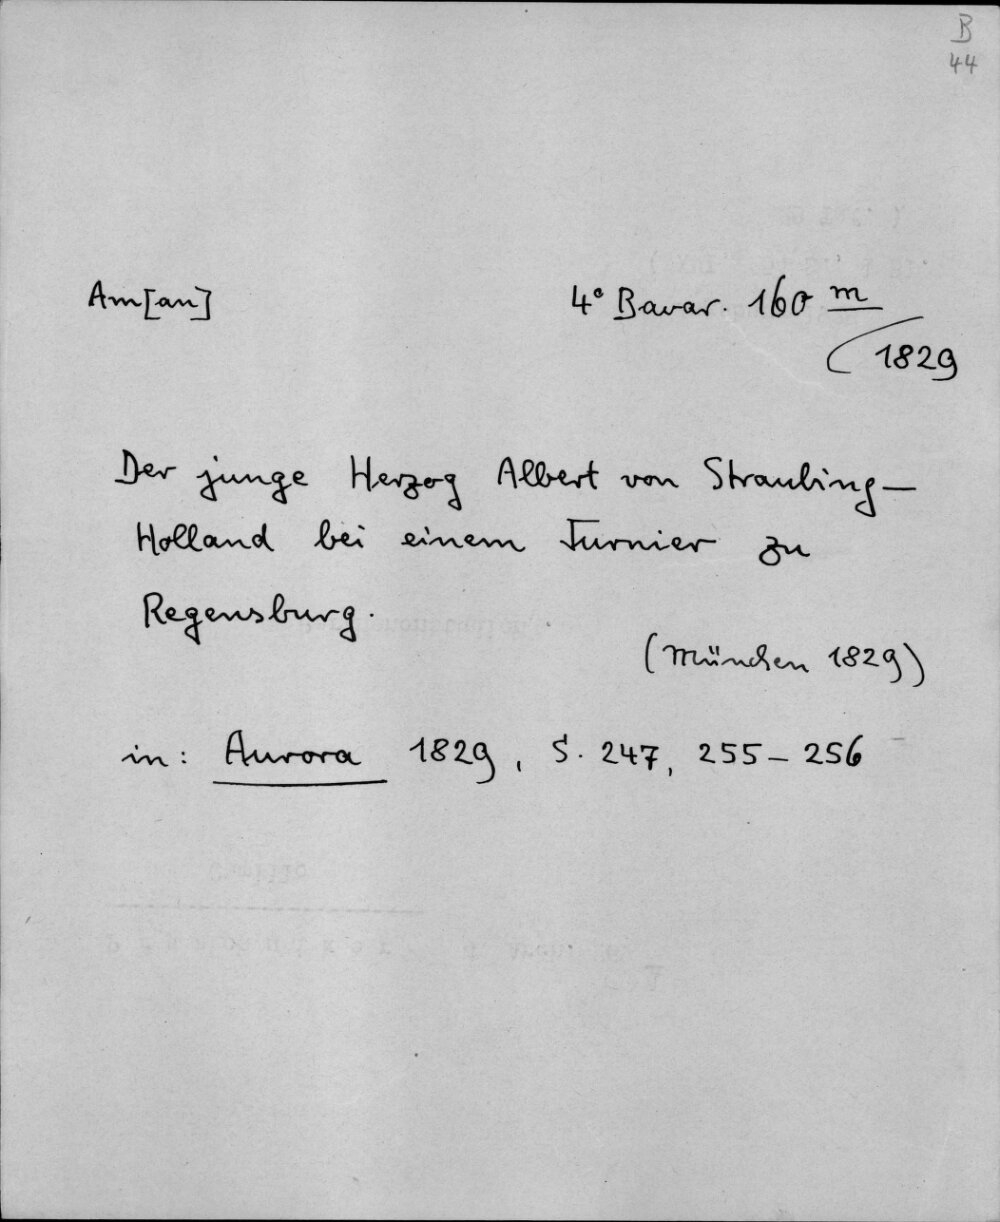 B
44
Am[an] 4° Bavar. 160 m
1829
Der junge Herzog Albert von Straubing-
Holland bei einem Turnier zu
Regensburg.
(München 1829)
in: Aurora 1829, S. 247, 255-256